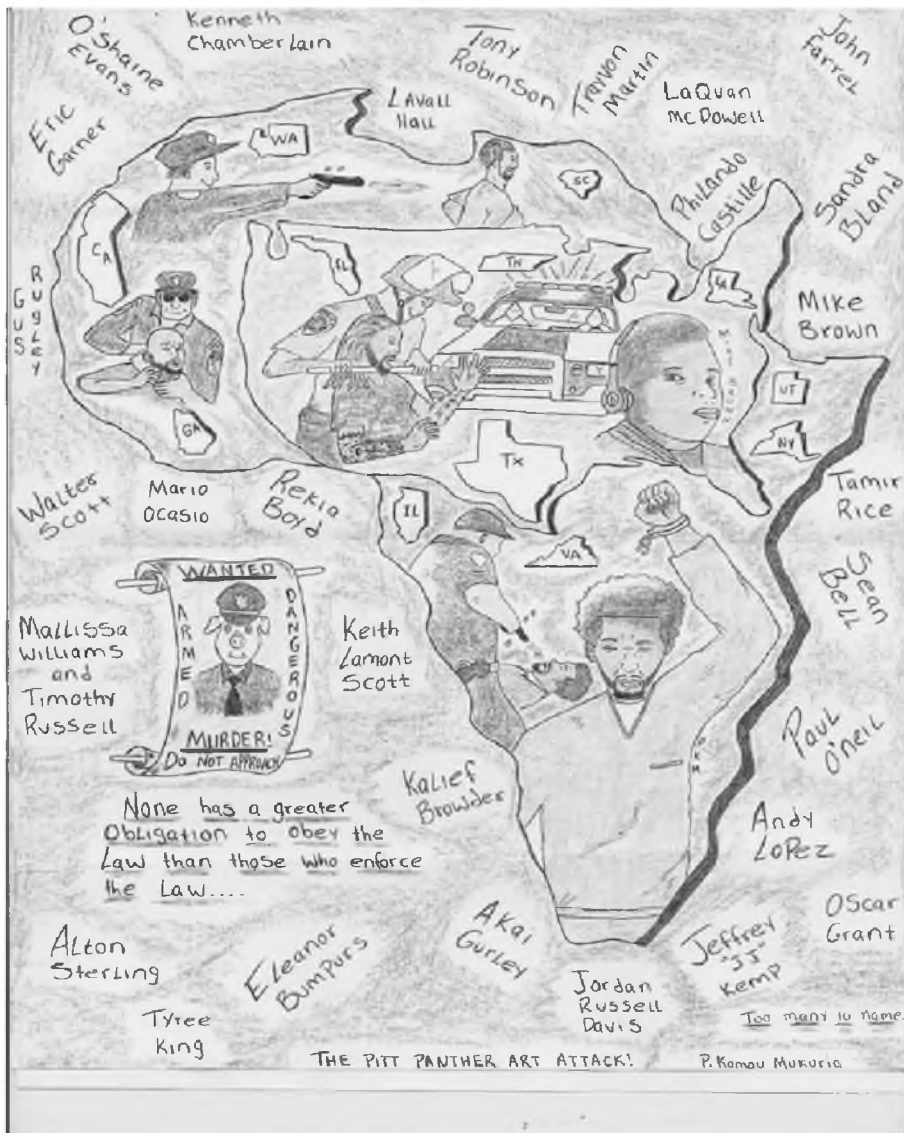 O'Shaine
Evans
Kenneth
Chamberlain
Tony
Robinson
Trayvon
Martin
John
Farrel
Eric
Garner
LAvall
Hall
LaQuan
McDowell
WA
SC
Philando
Castille
Sandra
Bland
CA
FL
TN
LA
GUS
RUGLEY
Mike
Brown
UT
GA
TX
NY
Walter
Scott
Mario
Ocasio
Rekia
Boyd
IL
VA
Tamir
Rice
Sean
Bell
WANTED
ARMED
DANGEROUS
MURDER!
Do NOT APPROACH
Mallissa
Williams
and
Timothy
Russell
Keith
Lamont
Scott
Paul
O'neil
Kalief
Browder
PKM
None has a greater
Obligation to obey the
Law than those who enforce
the Law....
Andy
Lopez
Alton
Sterling
Eleanor
Bumpurs
Akai
Gurley
Jeffrey
"JJ"
Kemp
Oscar
Grant
Tyree
King
Jordan
Russell
Davis
Too many to name.
THE PITT PANTHER ART ATTACK!
P. Kamau Mukuria